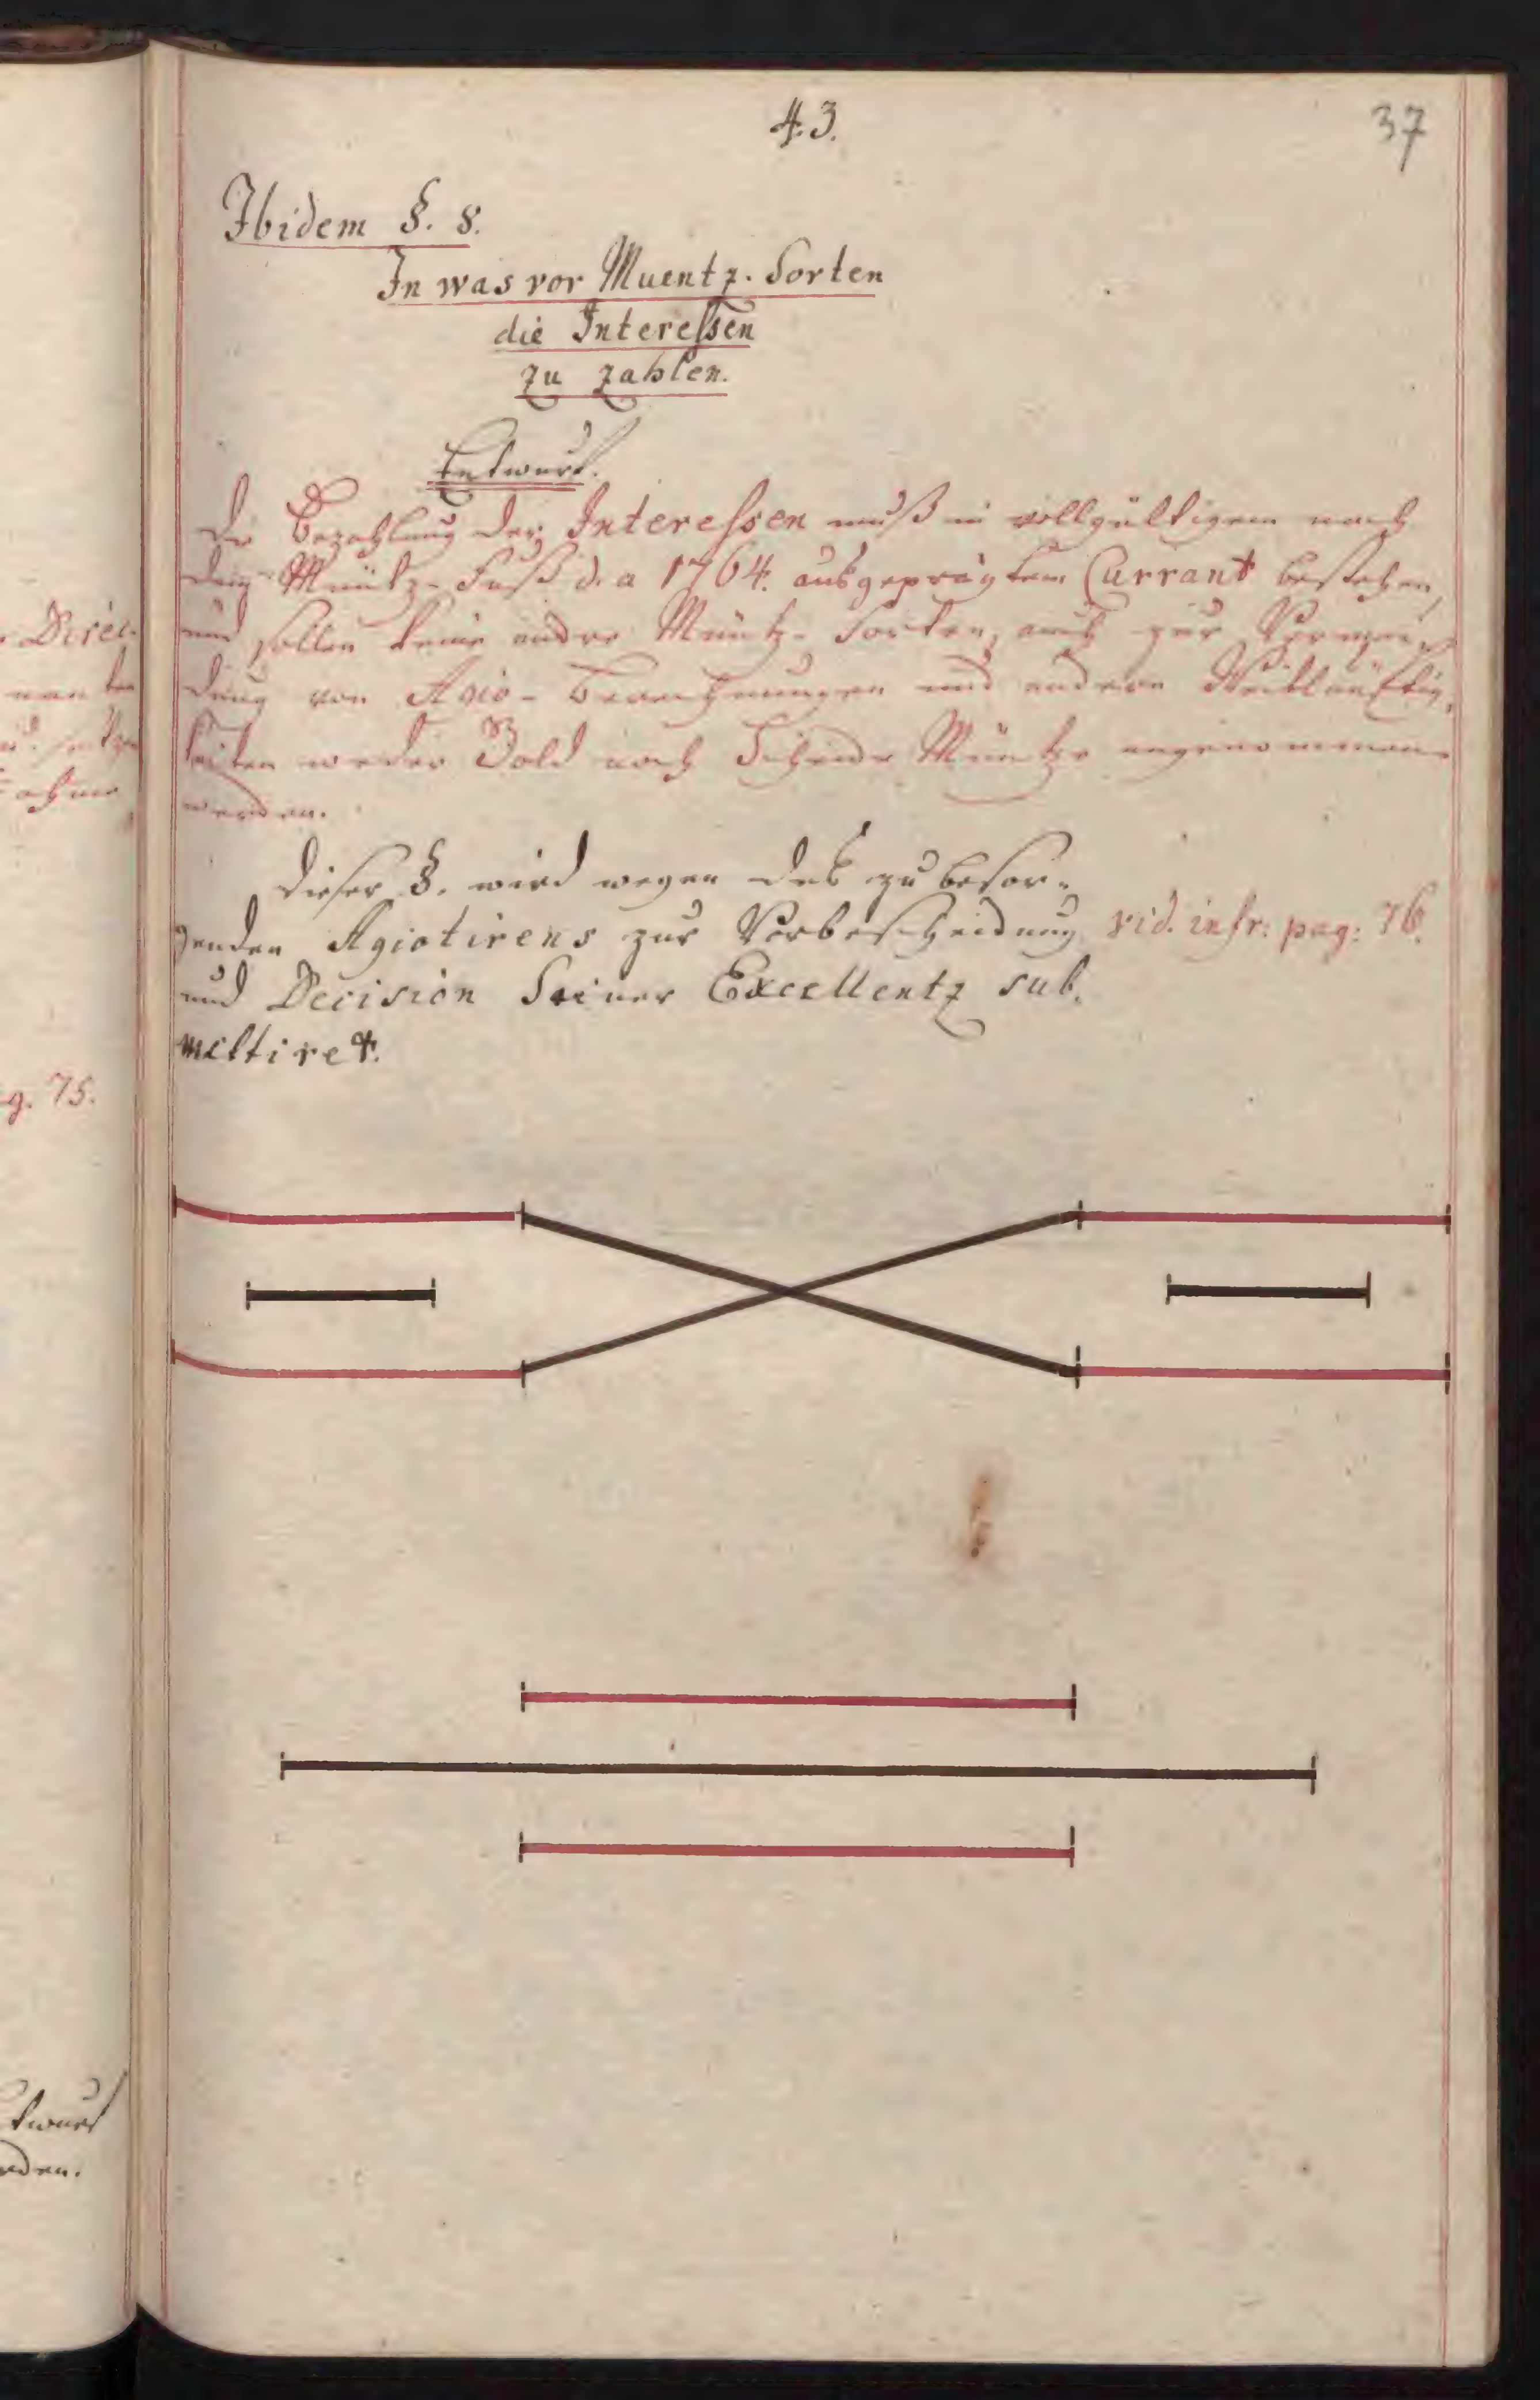 43.
37
Ibidem §. 8.
In was vor Muentz-Sorten
die Interessen
zu zahlen.
Entwurf.
Die Bezahlung der Interessen muß in vollgültigem nach
dem Müntz-Fuß d. a 1764. ausgeprägtem Currant bestehen,
und sollen keine andre Müntz-Sorten, auch zur Vermei-
dung von Agio-Berechnungen und andern Weitläuftig-
keiten weder Gold noch Scheide Müntze angenommen
werden.
Dieser §. wird wegen des zu besor-
genden Agiotirens zur Vorbescheidung
vid. infr: pag: 76.
und Decision Seiner Excellentz sub-
mittiret.
Direc-
g. 75.
ntwurf
rden.